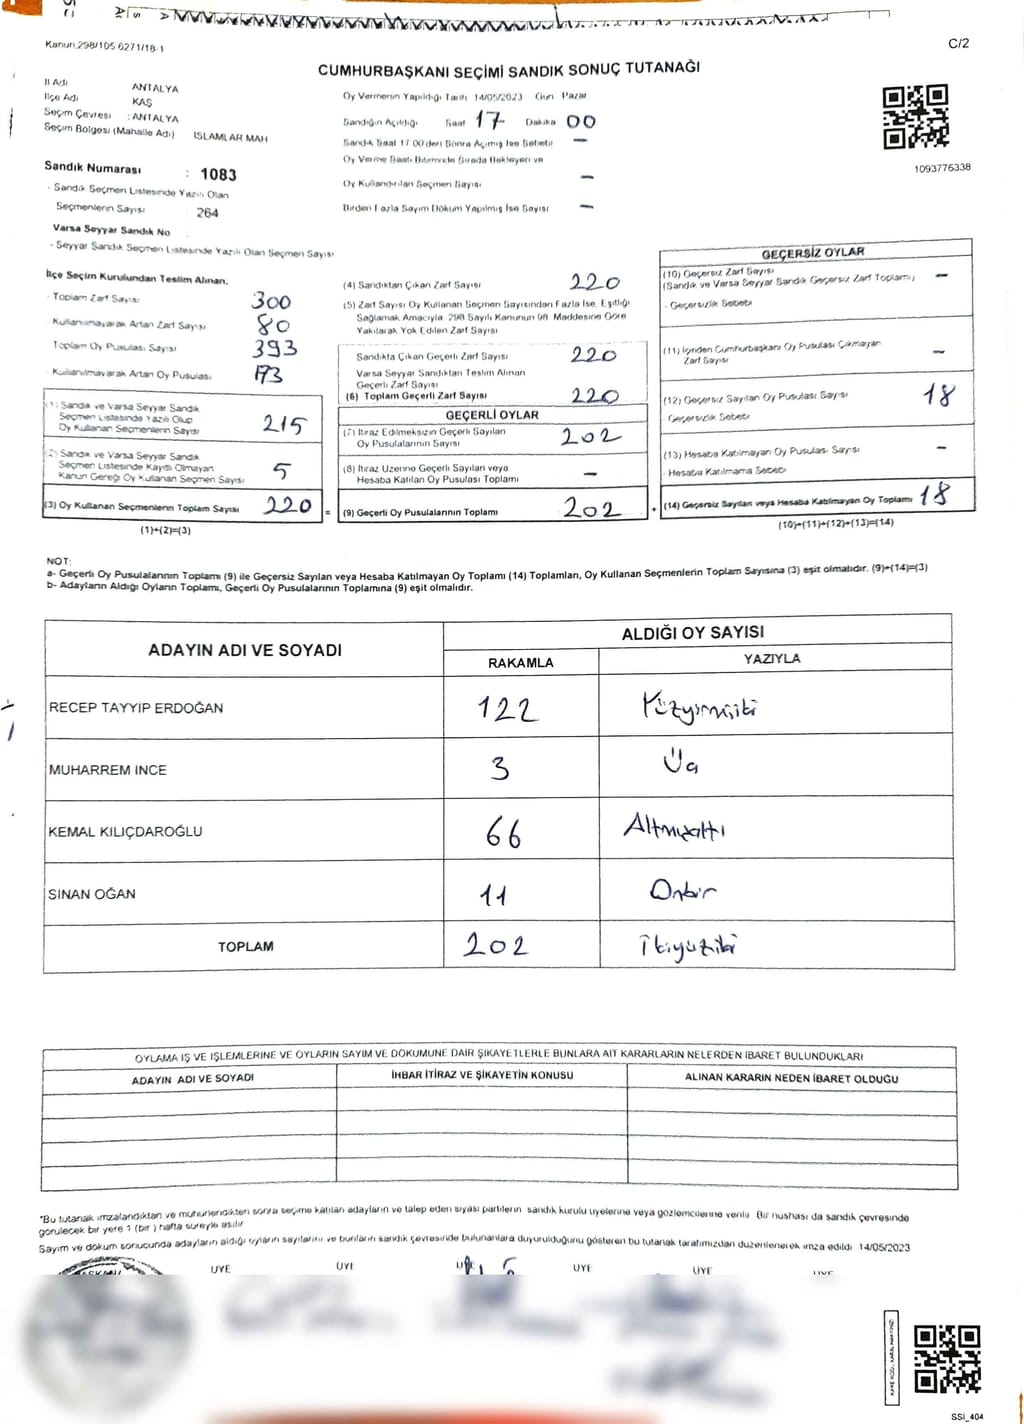 Kanun:298/105 6271/18-1
C/2
CUMHURBAŞKANI SEÇİMİ SANDIK SONUÇ TUTANAĞI
İl Adı ANTALYA
İlçe Adı KAŞ
Seçim Çevresi : ANTALYA
Seçim Bölgesi (Mahalle Adı) İSLAMLAR MAH
Sandık Numarası : 1083
- Sandık Seçmen Listesinde Yazılı Olan
Seçmenlerin Sayısı 264
Varsa Seyyar Sandık No
- Seyyar Sandık Seçmen Listesinde Yazılı Olan Seçmen Sayısı
Oy Vermenin Yapıldığı Tarih 14/05/2023 Gün Pazar
Sandığın Açıldığı Saat 17 Dakika 00
Sandık Saat 17 00'den Sonra Açılmış İse Sebebi —
Oy Verme Saati Bitiminde Sırada Bekleyen ve
Oy Kullandırılan Seçmen Sayısı —
Birden Fazla Sayım Döküm Yapılmış İse Sayısı —
1093776338
İlçe Seçim Kurulundan Teslim Alınan,
- Toplam Zarf Sayısı 300
- Kullanılmayarak Artan Zarf Sayısı 80
Toplam Oy Pusulası Sayısı 393
- Kullanılmayarak Artan Oy Pusulası 173
(1) Sandık ve Varsa Seyyar Sandık
Seçmen Listesinde Yazılı Olup
Oy Kullanan Seçmenlerin Sayısı 215
(2) Sandık ve Varsa Seyyar Sandık
Seçmen Listesinde Kayıtlı Olmayan
Kanun Gereği Oy Kullanan Seçmen Sayısı 5
(3) Oy Kullanan Seçmenlerin Toplam Sayısı 220 =
(1)+(2)=(3)
(4) Sandıktan Çıkan Zarf Sayısı 220
(5) Zarf Sayısı Oy Kullanan Seçmen Sayısından Fazla İse, Eşitliği
Sağlamak Amacıyla 298 Sayılı Kanunun 98 Maddesine Göre
Yakılarak Yok Edilen Zarf Sayısı
Sandıkta Çıkan Geçerli Zarf Sayısı 220
Varsa Seyyar Sandıktan Teslim Alınan
Geçerli Zarf Sayısı
(6) Toplam Geçerli Zarf Sayısı 220
GEÇERLİ OYLAR
(7) İtiraz Edilmeksizin Geçerli Sayılan
Oy Pusulalarının Sayısı 202
(8) İtiraz Üzerine Geçerli Sayılan veya
Hesaba Katılan Oy Pusulası Toplamı —
(9) Geçerli Oy Pusulalarının Toplamı 202 +
GEÇERSİZ OYLAR
(10) Geçersiz Zarf Sayısı —
(Sandık ve Varsa Seyyar Sandık Geçersiz Zarf Toplamı)
- Geçersizlik Sebebi
(11) İçinden Cumhurbaşkanı Oy Pusulası Çıkmayan
Zarf Sayısı —
(12) Geçersiz Sayılan Oy Pusulası Sayısı 18
Geçersizlik Sebebi
(13) Hesaba Katılmayan Oy Pusulası Sayısı —
- Hesaba Katılmama Sebebi
(14) Geçersiz Sayılan veya Hesaba Katılmayan Oy Toplamı 18
(10)+(11)+(12)+(13)=(14)
NOT:
a- Geçerli Oy Pusulalarının Toplamı (9) ile Geçersiz Sayılan veya Hesaba Katılmayan Oy Toplamı (14) Toplamları, Oy Kullanan Seçmenlerin Toplam Sayısına (3) eşit olmalıdır. (9)+(14)=(3)
b- Adayların Aldığı Oyların Toplamı, Geçerli Oy Pusulalarının Toplamına (9) eşit olmalıdır.
ADAYIN ADI VE SOYADI ALDIĞI OY SAYISI
RAKAMLA YAZIYLA
RECEP TAYYIP ERDOĞAN 122 Yüzyirmiiki
MUHARREM İNCE 3 Üç
KEMAL KILIÇDAROĞLU 66 Altmışaltı
SİNAN OĞAN 11 Onbir
TOPLAM 202 İkiyüziki
OYLAMA İŞ VE İŞLEMLERİNE VE OYLARIN SAYIM VE DÖKÜMÜNE DAİR ŞİKAYETLERLE BUNLARA AİT KARARLARIN NELERDEN İBARET BULUNDUKLARI
ADAYIN ADI VE SOYADI İHBAR İTİRAZ VE ŞİKAYETİN KONUSU ALINAN KARARIN NEDEN İBARET OLDUĞU
*Bu tutanak imzalandıktan ve mühürlendikten sonra seçime katılan adayların ve talep eden siyasi partilerin sandık kurulu üyelerine veya gözlemcilerine verilir. Bir nüshası da sandık çevresinde
görülecek bir yere 1 (bir) hafta süreyle asılır
Sayım ve döküm sonucunda adayların aldığı oyların sayılarını ve bunların sandık çevresinde bulunanlara duyurulduğunu gösteren bu tutanak tarafımızdan düzenlenerek imza edildi 14/05/2023
ÜYE ÜYE ÜYE ÜYE
SSI_404